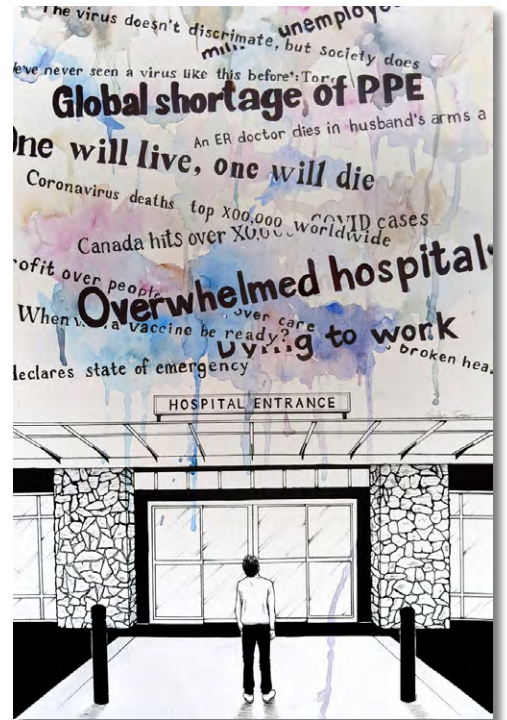 The virus doesn't discriminate, but society does
unemploye
milli
e've never seen a virus like this before': Toro
Global shortage of PPE
An ER doctor dies in husband's arms a
One will live, one will die
Coronavirus deaths top X00,000 worldwide
COVID cases
Canada hits over X0,0
rofit over people
Overwhelmed hospitals
When a vaccine be ready?
over care
Dying to work
broken hea
declares state of emergency
HOSPITAL ENTRANCE